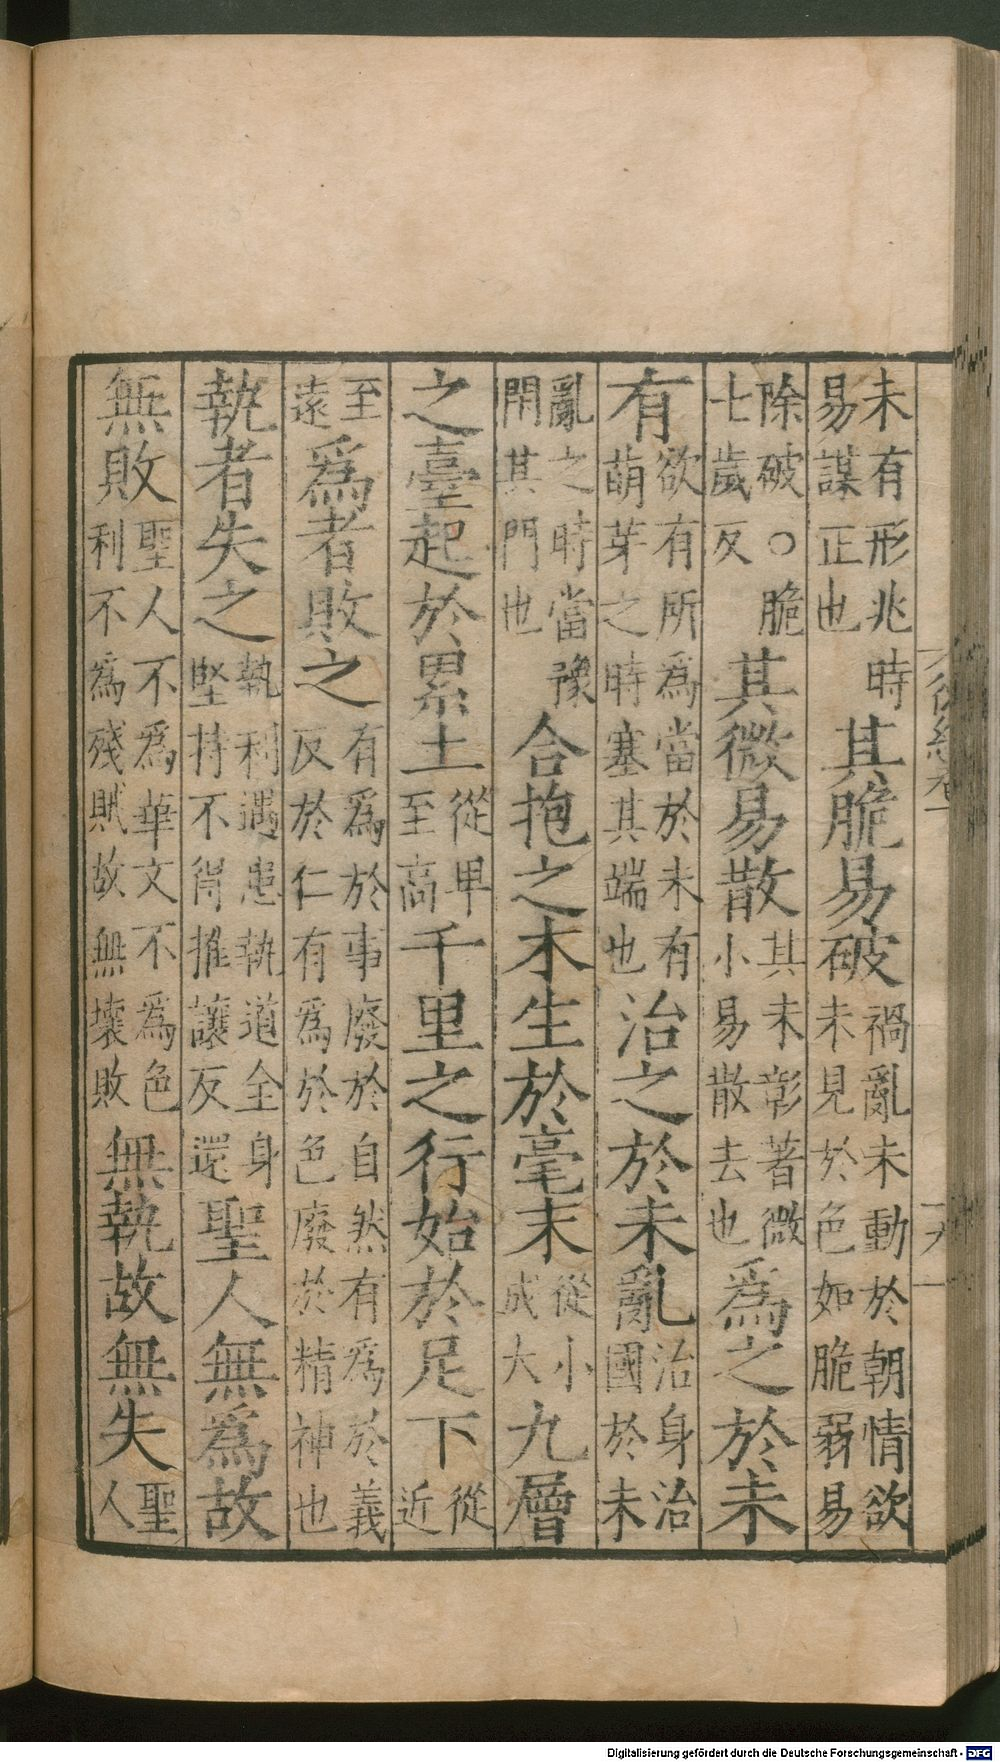 未有形兆時易謀正也其脆易破禍亂未動於朝情欲未見於色如脆弱易
除破○脆七歲反其微易散其未彰著微小易散去也爲之於未
有欲有所爲當於未有萌芽之時塞其端也治之於未亂治身治國於未
亂之時當豫閉其門也合抱之木生於毫末從小成大九層
之臺起於累土從卑至高千里之行始於足下從近
至遠爲者敗之有爲於事廢於自然有爲於義反於仁有爲於色廢於精神也
執者失之執利遇患執道全身堅持不得推讓反還聖人無爲故
無敗聖人不爲華文不爲色利不爲殘賊故無壞敗無執故無失聖人
Digitalisierung gefördert durch die Deutsche Forschungsgemeinschaft - DFG